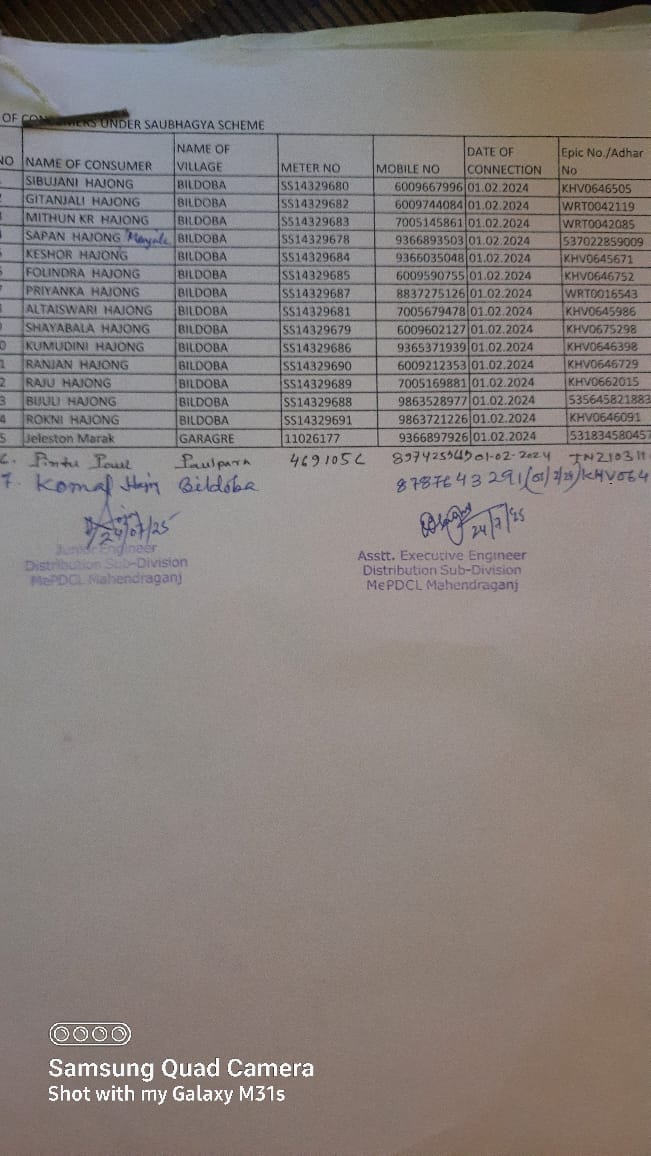 OF CONSUMERS UNDER SAUBHAGYA SCHEME
NO NAME OF CONSUMER NAME OF VILLAGE METER NO MOBILE NO DATE OF CONNECTION Epic No./Adhar No
SIBUJANI HAJONG BILDOBA SS14329680 6009667996 01.02.2024 KHV0646505
GITANJALI HAJONG BILDOBA SS14329682 6009744084 01.02.2024 WRT0042119
MITHUN KR HAJONG BILDOBA SS14329683 7005145861 01.02.2024 WRT0042085
SAPAN HAJONG BILDOBA SS14329678 9366893503 01.02.2024 537022859009
KESHOR HAJONG BILDOBA SS14329684 9366035048 01.02.2024 KHV0645671
FOLINDRA HAJONG BILDOBA SS14329685 6009590755 01.02.2024 KHV0646752
PRIYANKA HAJONG BILDOBA SS14329687 8837275126 01.02.2024 WRT0016543
ALTAISWARI HAJONG BILDOBA SS14329681 7005679478 01.02.2024 KHV0645986
SHAYABALA HAJONG BILDOBA SS14329679 6009602127 01.02.2024 KHV0675298
0 KUMUDINI HAJONG BILDOBA SS14329686 9365371939 01.02.2024 KHV0646398
1 RANJAN HAJONG BILDOBA SS14329690 6009212353 01.02.2024 KHV0646729
2 RAJU HAJONG BILDOBA SS14329689 7005169881 01.02.2024 KHV0662015
3 BIJULI HAJONG BILDOBA SS14329688 9863528977 01.02.2024 535645821883
4 ROKNI HAJONG BILDOBA SS14329691 9863721226 01.02.2024 KHV0646091
5 Jeleston Marak GARAGRE 11026177 9366897926 01.02.2024 531834580457
Paul Paulpara 469105C 01-02-2024
7. Komal Bildoba 8787643291 KHV064
24/07/25 24/7/25
Junior Engineer Asstt. Executive Engineer
Distribution Sub-Division Distribution Sub-Division
MePDCL Mahendraganj MePDCL Mahendraganj
Samsung Quad Camera
Shot with my Galaxy M31s